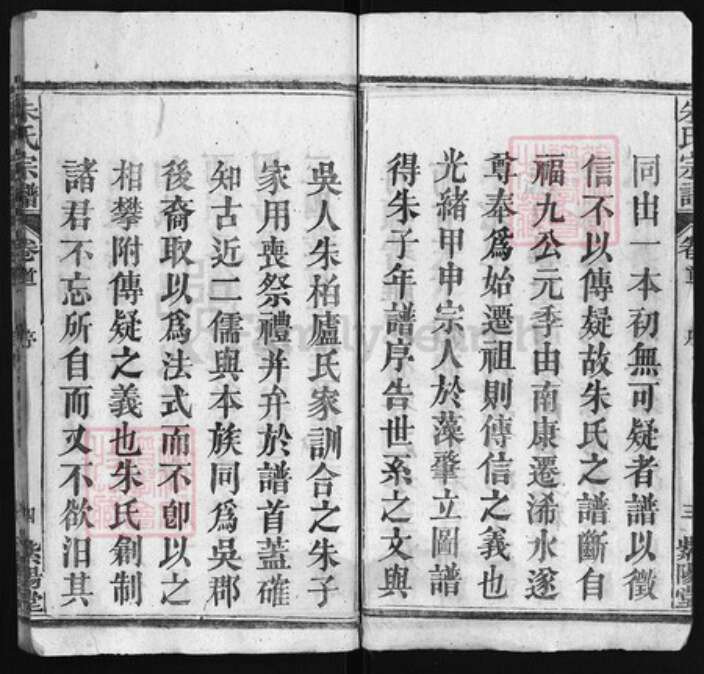 同出一本初無可疑者譜以徵
信不以傳疑故朱氏之譜斷自
福九公元季由南康遷浠水遂
尊奉爲始遷祖則傳信之義也
光緒甲申宗人於藻肇立圖譜
得朱子年譜序告世系之文與
吳人朱柏廬氏家訓合之朱子
家用喪祭禮并弁於譜首蓋確
知古近二儒與本族同爲吳郡
後裔取以爲法式而不卽以之
相攀附傳疑之義也朱氏創制
諸君不忘所自而又不欲汨其
朱氏宗譜
卷首
序
三
紫陽堂
朱氏宗譜
卷首
序
四
紫陽堂
FamilySearch